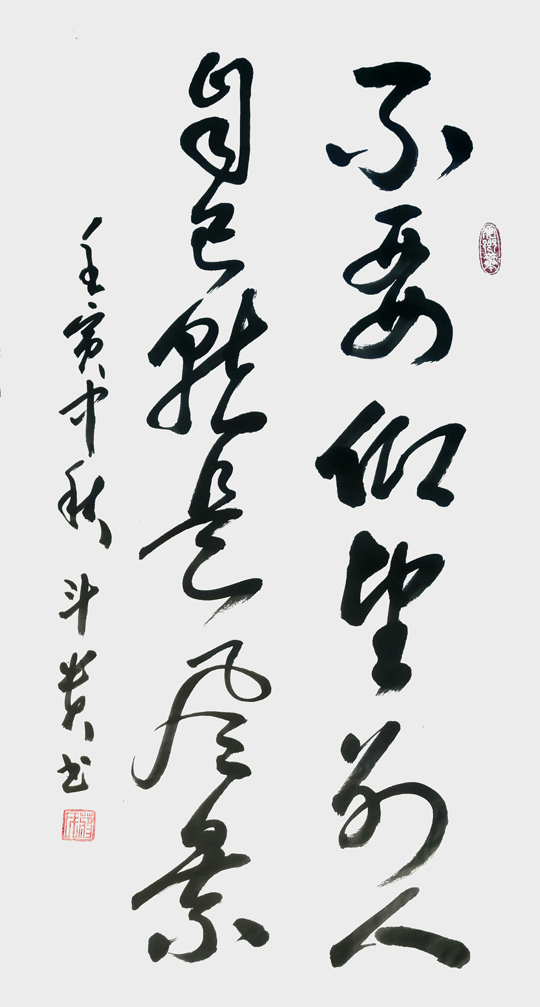 不要仰望别人
自己就是风景
壬寅中秋 斗贵书